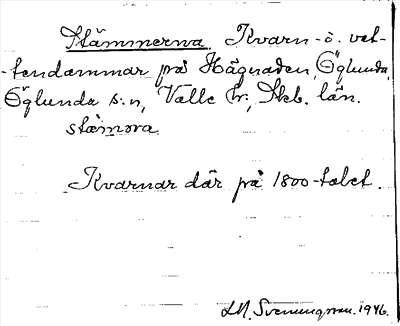 Stämmerna. Kvarn- o. vat-
tendammar på Hägnaden, Öglunda,
Öglunda s:n, Valle hr., Skb. län.
stämora.
Kvarnar där på 1800-talet.
S.M. Svenungsson. 1946.